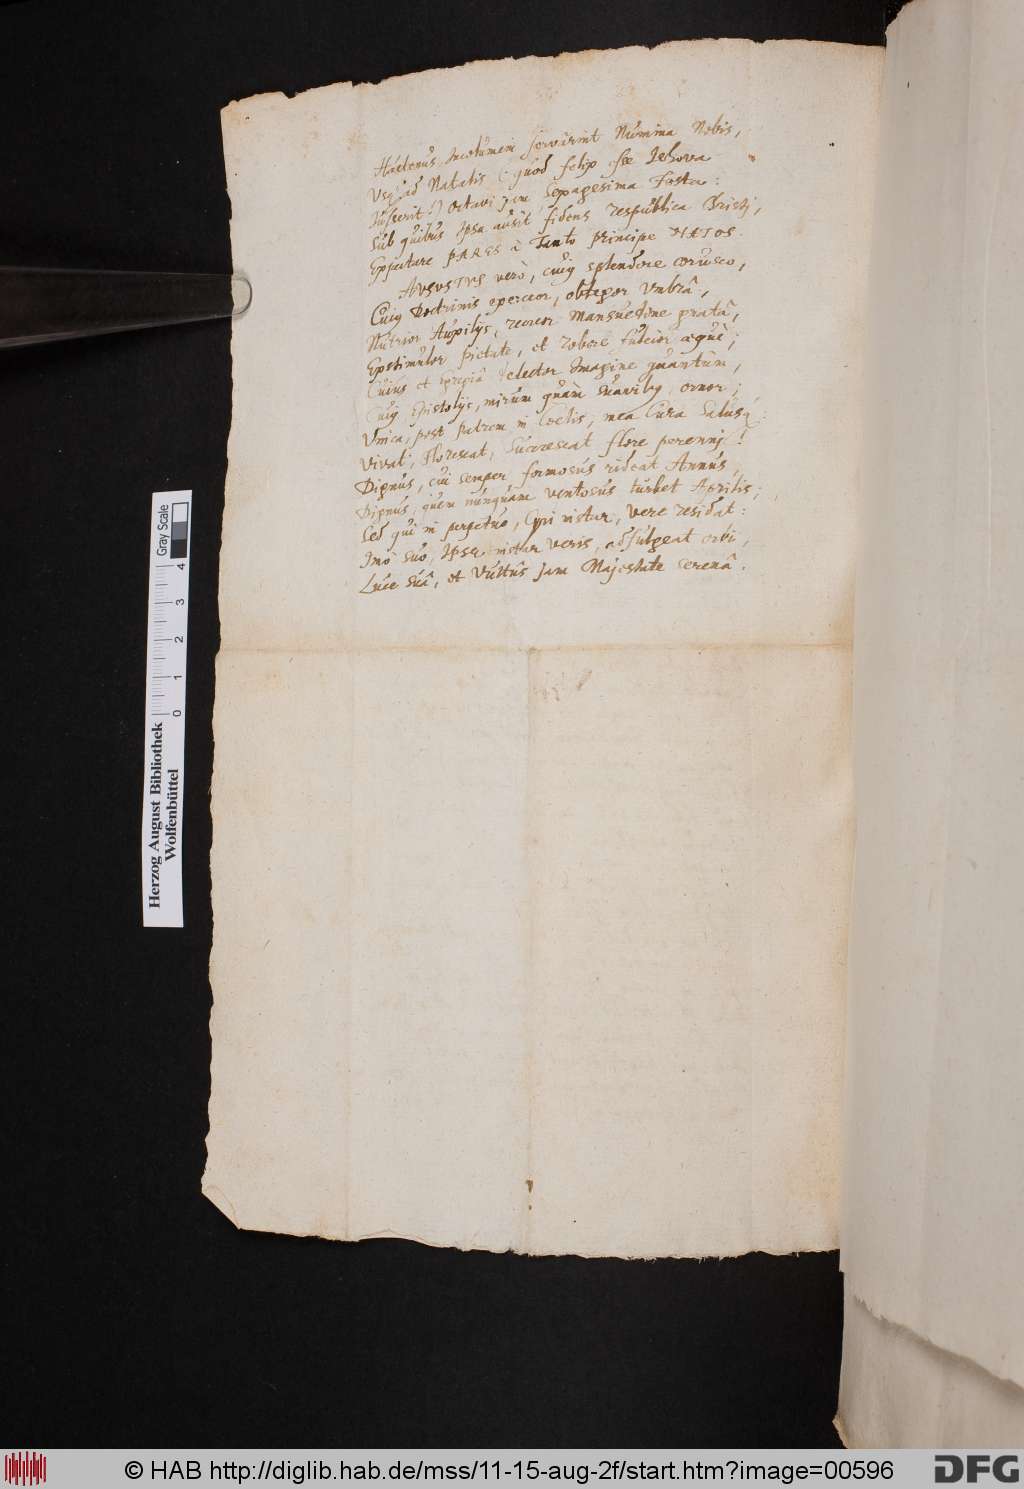 Hactenus Incolumem servârint Numina Nobis,
Usq; ad Natalis (: quod felix sic Jehova
Jusserit!:) Octavi jam Sexagesima Festa:
Sub quibus Ipsa ausit fidens respublica Christj,
Expectare PARES à Tanto Principe NATOS.
AUGUSTUS verò, cuiq splendore corusco,
Cuiq Doctrinis exerceor, obtegor Umbrâ,
Nutrior Auxilijs, recreor Mansuetudine gratâ,
Exstimulor pietate, et robore fulcior aequè;
Cuius et egregiâ delector Imagine quantùm,
Cuiq Epistolijs, mirùm quàm suavibq, ornor;
Unica, post Patrem in Coelis, mea Cura Salusq:
Vivat, Florescat, Succrescat flore perennj!
Dignus, cui semper formosus rideat Annus,
Dignus, quem nunquam ventosus turbet Aprilis;
Sed qui in perpetuo, Cypri instar, vere residat:
Imò suo, Ipse instar Veris, adfulgeat orbi,
Luce suâ, et Vultûs jam Majestate serenâ.
Herzog August Bibliothek
Wolfenbüttel
0 1 2 3 4
Gray Scale
© HAB http://diglib.hab.de/mss/11-15-aug-2f/start.htm?image=00596
DFG